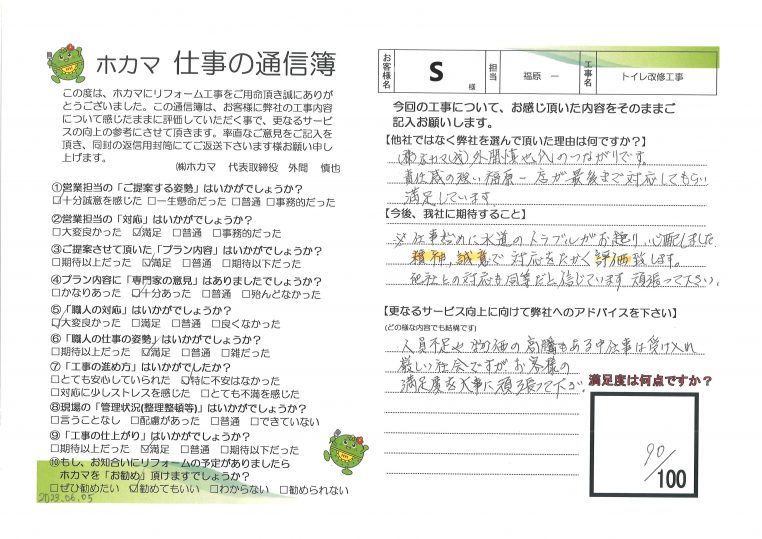 ホカマ 仕事の通信簿
この度は、ホカマにリフォーム工事をご用命頂き誠にありが
とうございました。この通信簿は、お客様に弊社の工事内容
について感じたままに評価していただく事で、更なるサービ
スの向上の参考にさせて頂きます。率直なご意見をご記入を
頂き、同封の返信用封筒にてご返送下さいます様お願い申し
上げます。
㈱ホカマ 代表取締役 外間 慎也
①営業担当の「ご提案する姿勢」はいかがでしょうか?
☑十分誠意を感じた □一生懸命だった □普通 □事務的だった
②営業担当の「対応」はいかがでしょうか?
□大変良かった ☑満足 □普通 □事務的だった
③ご提案させて頂いた「プラン内容」はいかがでしょうか?
□期待以上だった ☑満足 □普通 □期待以下だった
④プラン内容に「専門家の意見」はありましたでしょうか?
□かなりあった ☑十分あった □普通 □殆んどなかった
⑤「職人の対応」はいかがでしょうか?
☑大変良かった □満足 □普通 □良くなかった
⑥「職人の仕事の姿勢」はいかがでしょうか?
□期待以上だった ☑満足 □普通 □雑だった
⑦「工事の進め方」はいかがでしたか?
□とても安心していられた ☑特に不安はなかった
□対応に少しストレスを感じた □とても不満を感じた
⑧現場の「管理状況(整理整頓等)」はいかがでしょうか?
□言うことなし □配慮があった □普通 □できていない
⑨「工事の仕上がり」はいかがでしょうか?
□期待以上だった ☑満足 □普通 □期待以下だった
⑩もし、お知合いにリフォームの予定がありましたら
ホカマを「お勧め」頂けますでしょうか?
□ぜひ勧めたい ☑勧めてもいい □わからない □勧められない
2023.06.05
お客様名 S 様 担当 福原 一 工事名 トイレ改修工事
今回の工事について、お感じ頂いた内容をそのままご
記入お願いします。
【他社ではなく弊社を選んで頂いた理由は何ですか?】
外間慎也氏のつながりです。
責任感の強い福原一店が最後まで対応してもらい
満足しています。
【今後、我社に期待すること】
※仕事始めに水道のトラブルがお起り、心配しました
精神、誠意で対応をたかく評価致します。
他社との対応も同等だと信じています 頑張って下さい。
【更なるサービス向上に向けて弊社へのアドバイスを下さい】
(どの様な内容でも結構です)
人員不足や物価の高騰もある中仕事は受け入れ
厳しい社会ですがお客様の
満足度を大事に頑張って下さい。
満足度は何点ですか?
90/100